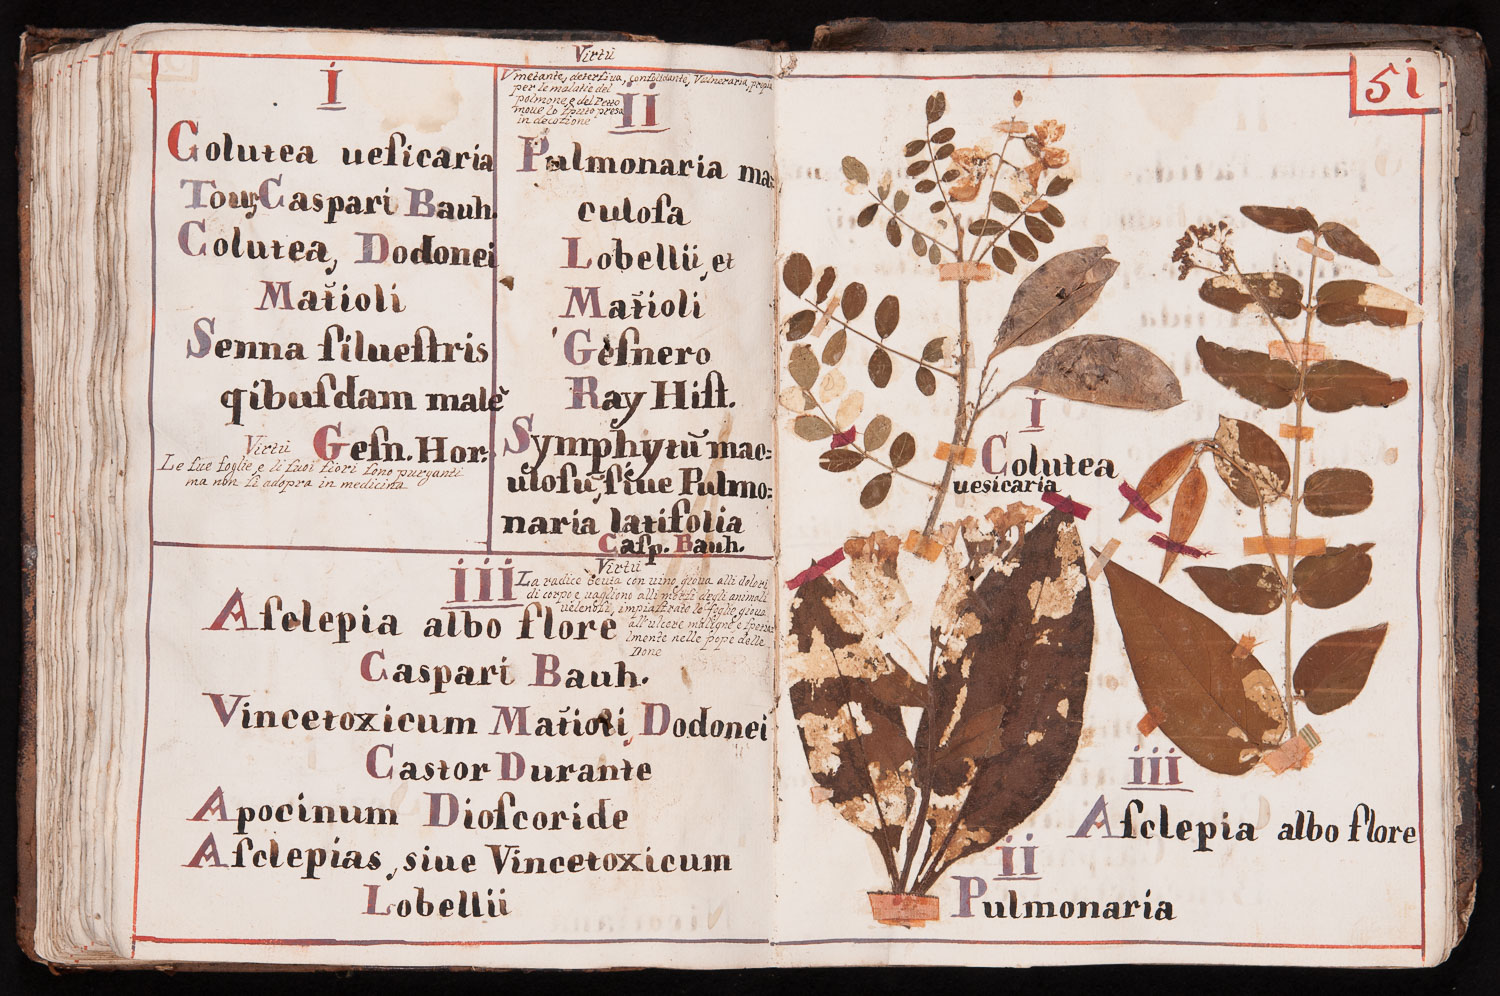 i
Colutea uesicaria
Tour, Caspari Bauh.
Colutea, Dodonei
Matioli
Senna siluestris
qibusdam malè
Gesn. Hor:
Virtù
Le sue foglie e li suoi fiori sono purganti
ma non si adopra in medicina
Virtù
detersiua, consolidante, Vulneraria, propia
per le malatie del
polmone, e del Petto
moue lo sputo presa
in decotione
ii
Pulmonaria ma:
culosa
Lobellii, et
Matioli
Gesnero
Ray Hist.
Symphytũ mac:
ulosũ, siue Pulmo:
naria latifolia
Casp. Bauh.
iii
Asclepia albo flore
Caspari Bauh.
Vincetoxicum Matioli, Dodonei
Castor Durante
Apocinum Dioscoride
Asclepias, siue Vincetoxicum
Lobellii
Virtù
La radice beuta con uino gioua alli dolori
di corpo e uagliono alli morsi degli animali
uelenosi, impiastrato le foglie gioua
all'ulcere maligne e spezial
lmente nelle pope delle
Done
5i
I
Colutea
uesicaria
iii
Asclepia albo flore
ii
Pulmonaria